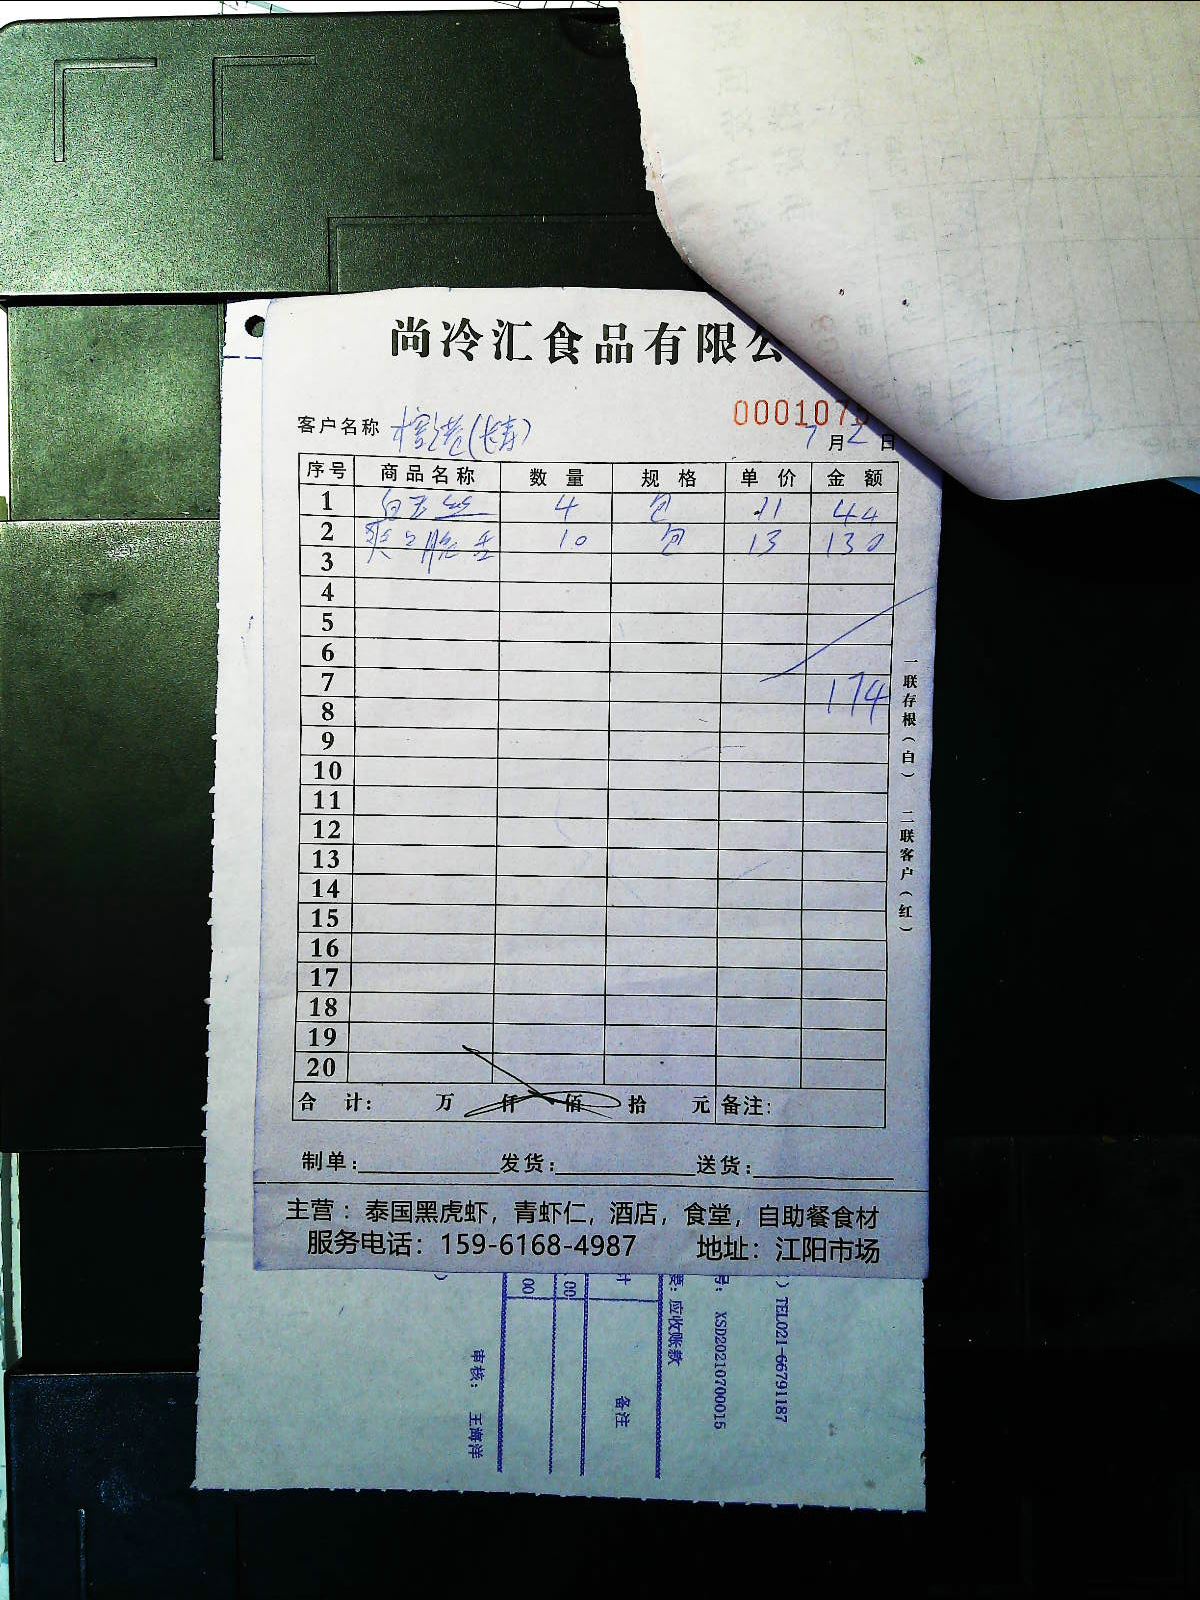 尚冷汇食品有限公
000107
客户名称 (长寿) 7月2日
序号 商品名称 数量 规格 单价 金额
1 白玉丝 4 包 11 44
2 爽口脆舌 10 包 13 130
3
4
5
6
7 174
8
9
10
11
12
13
14
15
16
17
18
19
20
合计： 万 仟 佰 拾 元 备注：
制单： 发货： 送货：
主营：泰国黑虎虾，青虾仁，酒店，食堂，自助餐食材
服务电话：159-6168-4987 地址：江阳市场
一联存根（白） 二联客户（红）
）TEL021-66791187
号： XSD20210700015
要：应收账款
计 备注
.00
00
审核： 王海洋